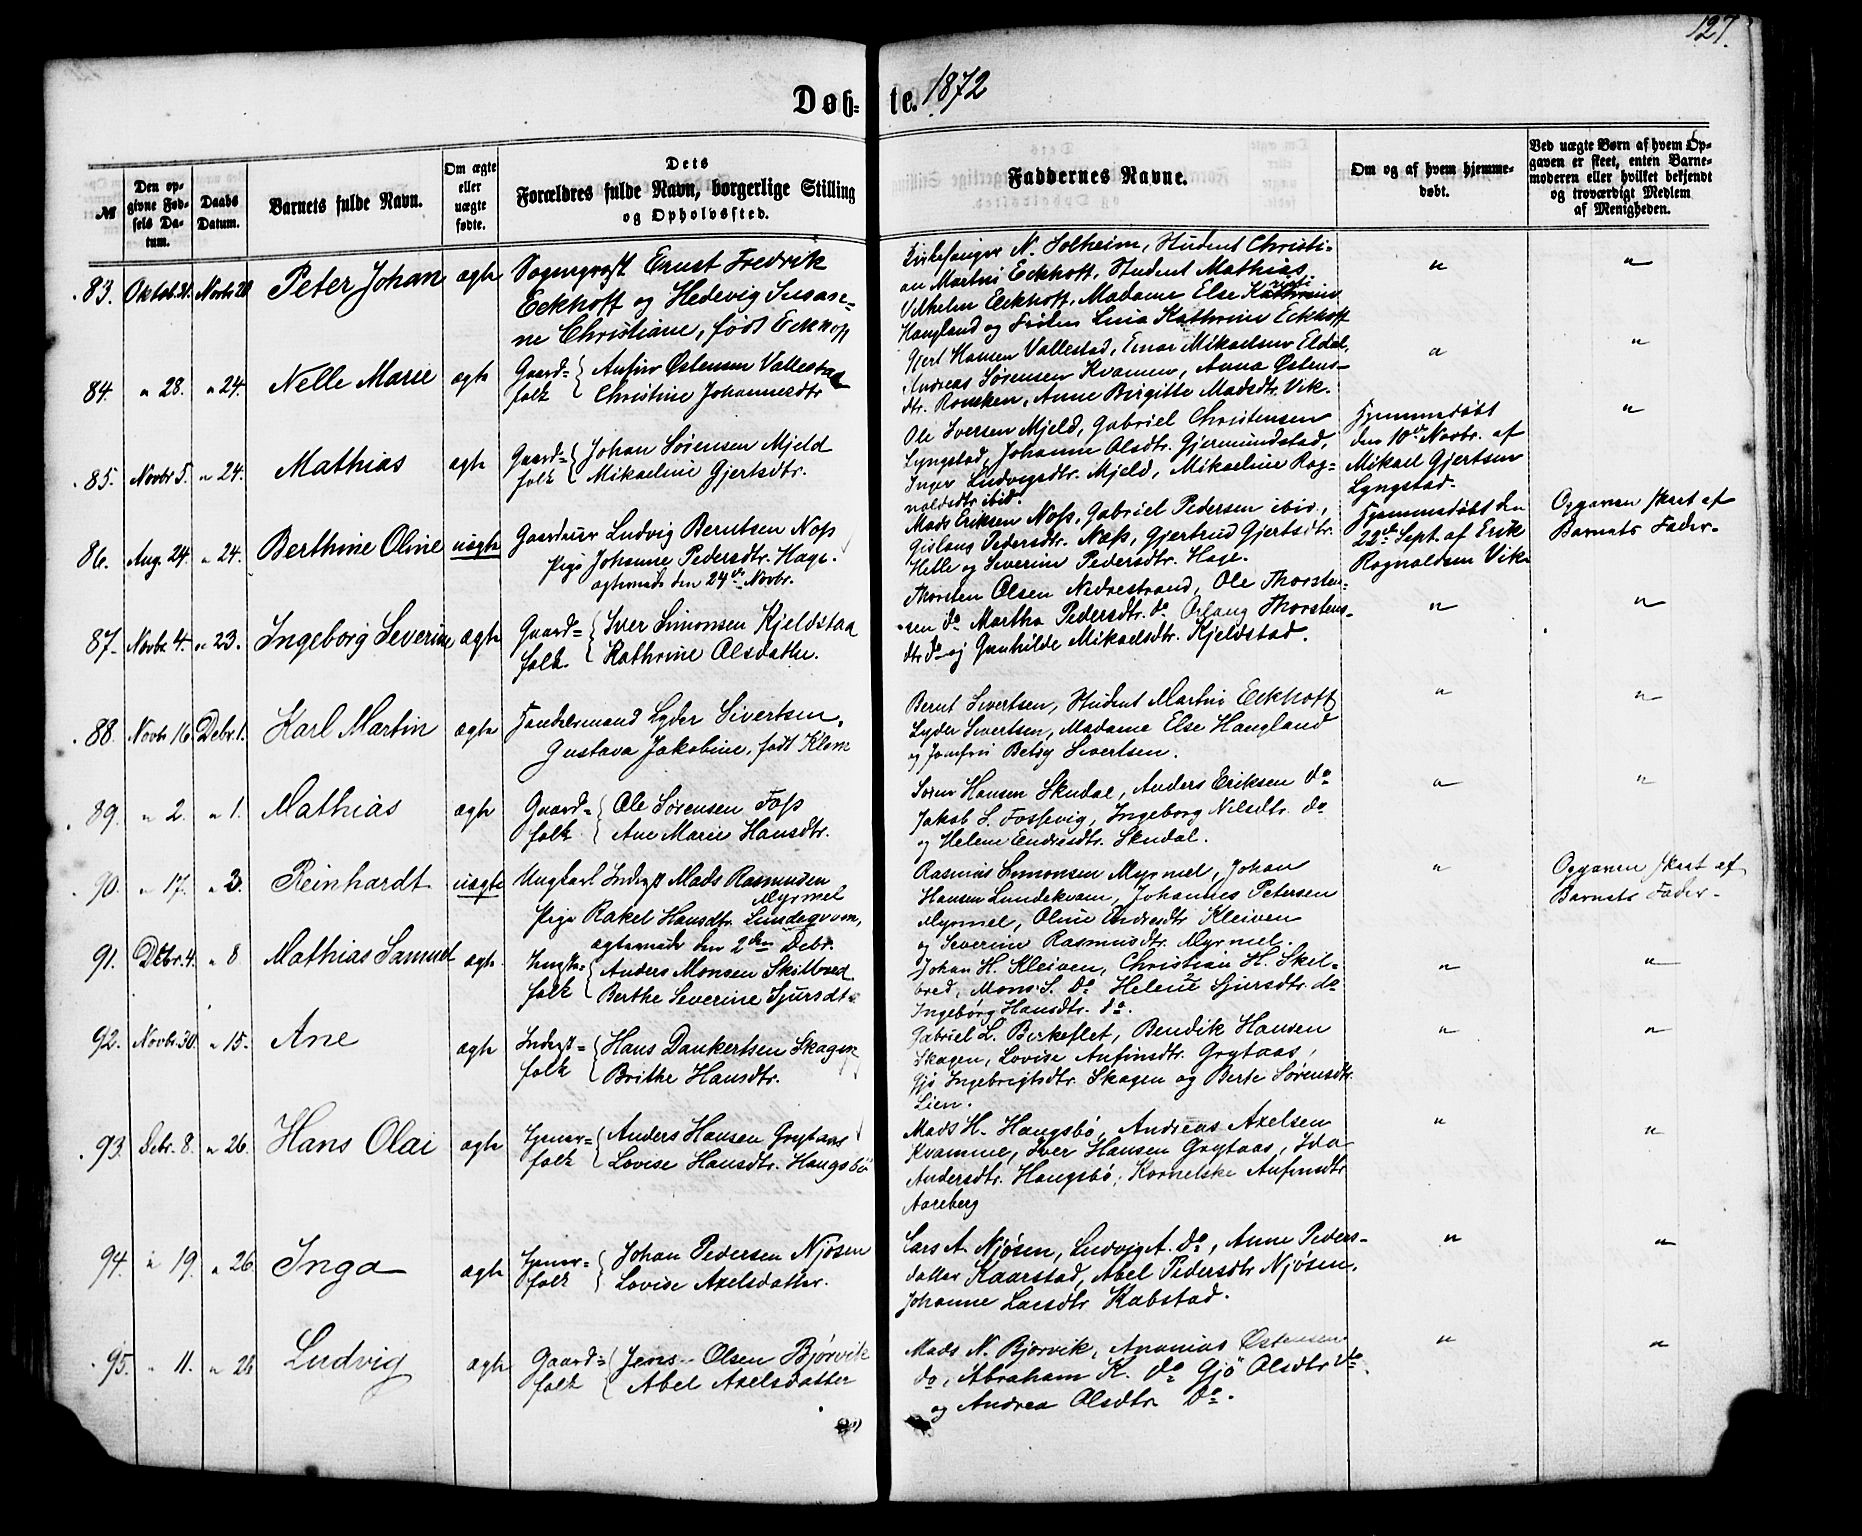 127.
Døb- te. 1872
№
Den op-
givne Fød-
sels Da-
tum.
Daabs
Datum.
Barnets fulde Navn.
Om ægte
eller
uægte
fødte.
Dets
Forældres fulde Navn, borgerlige Stilling
og Opholdssted.
Faddernes Navne.
Om og af hvem hjemme-
døbt.
Ved uægte Børn af hvem Op-
gaven er skeet, enten Barne-
moderen eller hvilket bekjendt
og troværdigt Medlem
af Menigheden.
83. Oktob. 31. Novbr 20 Peter Johan ægte
Sogneprest Ernst Fredrik
Eckhoff og Hedevig Susan-
ne Christiane, født Eckhoff
Kirkesanger N. Solheim, Student Christi-
an Martin Eckhoff, Student Mathias
Vilhelm Eckhoff, Madame Else
Haugland og Frøken Lina Kathrine Eckhoff
" "
84. " 28. " 24. Nelle Marie ægte
Gaard- Anfin Østensen Vallestad
folk Christine Johannesdtr
Gjert Hansen Vallestad, Einar Mikaelsen Eldal,
Andreas Sørensen Kvamen, Anna Østens-
dtr. Roneken, Anne Birgitte Madsdtr. Vik.
" "
85. Novbr 5. " 24. Mathias ægte
Gaard- Johan Sørensen Mjeld
folk Mikaeline Gjertsdtr.
Ole Iversen Mjeld, Gabriel Christensen
Lyngstad, Johanne Olsdtr. Gjermundstad,
Inger Ludvigsdtr. Mjeld, Mikaeline Rag-
naldsdtr ibid.
Hjemmedøbt
den 10de Novbr. af
Mikael Gjertsen
Lyngstad.
"
86. Aug. 24. " 24. Berthine Oline uægte
Gaardmand Ludvig Berntsen Næss
Pige Johanne Pedersdtr. Hage.
ægteviede den 24de Novbr.
Mads Eriksen Næss, Gabriel Pedersen ibid.,
Gislaug Pedersdtr. Næss, Gjertrud Gjertsdtr.
Helle og Severine Pedersdtr. Hage.
Hjemmedøbt den
22de Sept. af Erik
Ragnaldsen Vik.
Opgaven skeet af
Barnets Fader.
87. Novbr. 4. " 23. Ingeborg Severine ægte
Gaard- Iver Simonsen Kjeldstad
folk Kathrine Olsdatter.
Thorsten Olsen Nedrestrand, Ole Thorsten-
sen do Martha Pedersdtr. do Thorstens-
dtr do og Gunhilde Mikaelsdtr. Kjeldstad.
" "
88. Novbr 16. Debr. 1. Karl Martin ægte
Handelsmand Lyder Sivertsen,
Gustava Jakobine, født Klem
Bernt Sivertsen, Student Martin Eckhoff
Lyder Sivertsen, Madame Else Haugland
og Jomfru Betsy Sivertsen.
" "
89. " 2. " 1. Mathias ægte
Gaard- Ole Sørensen Foss
folk Ane Marie Hansdtr.
Søren Hansen Skudal, Anders Eriksen do
Jakob S. Fossevig, Ingeborg Nilsdtr. do
og Helene Endresdtr. Skudal.
" "
90. " 17. " 2. Reinhardt uægte
Ungkarl Inderst Mads Rasmusen
Myrmel
Pige Rakel Hansdtr. Lundeqvam,
ægteviede den 2den Debr.
Rasmus Simonsen Myrmel, Johan
Hansen Lundekvam, Johannes Petersen
Myrmel, Oline Andersdtr Kleiven
og Severine Rasmusdtr. Myrmel.
"
Opgaven skeet af
Barnets Fader.
91. Debr. 4. " 8 Mathias Samuel ægte
folk Anders Monsen Skilbred
Berthe Severine Sjursdtr.
Johan H. Kleiven, Christian H. Skil-
bred, Mons S. do Helene Sjursdtr. do
Ingebørg Hansdtr. do.
" "
92. Novbr. 30. " 15. Ane ægte
Inderst- Hans Dankertsen Skagen
folk Brithe Hansdtr.
Gabriel L. Birkeflet, Bendik Hansen
Skagen, Lovise Anfinsdtr. Grytaas,
Gjø Ingebrigtsdtr. Skagen og Berte Sørensdtr.
Lien.
" "
93. Debr. 8. " 26. Hans Olai ægte
folk Anders Hansen Grytaas
Lovise Hansdtr. Haugsbø
Mads H. Haugsbø, Andreas Axelsen
Kvamme, Iver Hansen Grytaas, Ida
Andersdtr. Haugsbø, Kornelske Anfinsdtr
Aareberg
" "
94. " 19. " 26. Inga ægte
folk Johan Pedersen Njøsen
Lovise Axelsdatter.
Lars A. Njøsen, Ludvig A. do, Anne Peders-
datter Kaarstad, Abel Pedersdtr Njøsen,
Johanne Larsdtr Kabstad.
" "
95. " 11. " 26 Ludvig ægte
Gaard- Jens Olsen Bjørvik
folk Abel Axelsdatter
Mads N. Bjørvik, Ananias Østensen
do, Abraham K. do Gjø Olsdtr do
og Andrea Olsdtr do.
" "